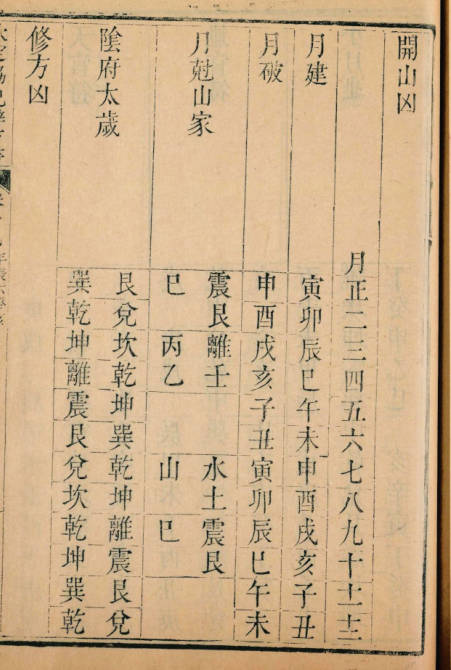 開山凶
月正二三四五六七八九十十一十二
月建 寅卯辰巳午未申酉戌亥子丑
月破 申酉戌亥子丑寅卯辰巳午未
月尅山家 震艮離壬 水土震艮
巳 丙乙 山 巳
隂府太歲 艮兌坎乾坤巽乾坤離震艮兌
巽乾坤離震艮兌坎乾坤巽乾
修方凶